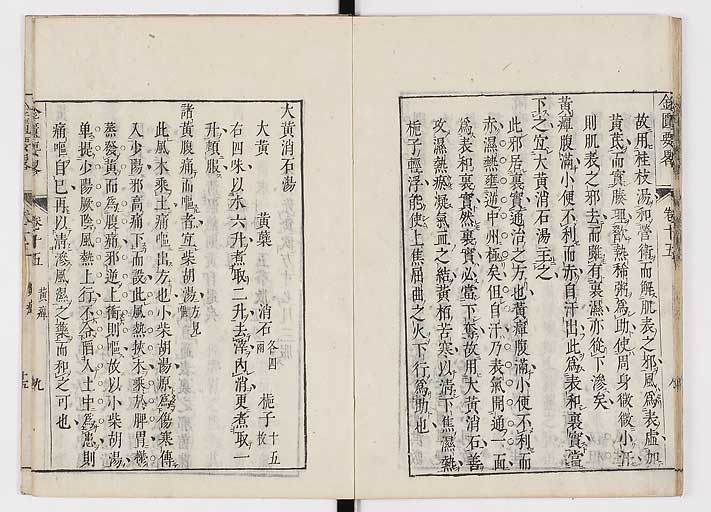 金匱要畧　卷十五
故用桂枝湯和營衛而解肌表之邪風爲表虛加
黃茋而實腠理歠熱稀粥爲助使周身微微小汗
則肌表之邪去而雖有裏濕亦從下滲矣
黃癉腹滿小便不利而赤自汗出此爲表和裏實當
下之宜大黃消石湯主之
此邪居裏實通治之方也黃癉腹滿小便不利而
赤濕熱壅遏中州極矣但自汗乃表氣開通一面
爲表和裏實然裏實必當下奪故用大黃消石善
攻濕熱瘀凝氣血之結黃栢苦寒以清下焦濕熱
梔子輕浮能使上焦屈曲之火下行爲助也
大黃消石湯
大黃　黃蘗　消石各四兩　梔子十五枚
右四味以水六升煮取二升去滓內消更煮取一
升頓服
諸黃腹痛而嘔者宜柴胡湯方見
此風木乘土痛嘔出方也小柴胡湯原爲傷寒傳
入少陽邪高痛下而設此風熱挾木乘於脾胃
蒸發黃而爲腹痛邪逆上衝則嘔故以小柴胡湯
單提少陽厥陰風熱上行不令陷入土中爲患則
痛嘔自已再以清滲風濕之藥而和之可也
金匱要畧　卷十五　黃癉　九